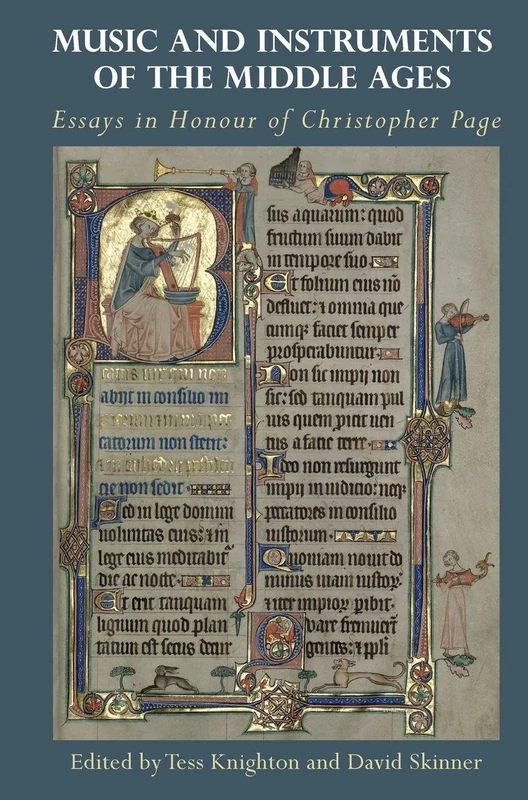 MUSIC AND INSTRUMENTS
OF THE MIDDLE AGES
Essays in Honour of Christopher Page
B
eatus uir qui non
abijt in consilio im
catorum non stetit:
cie non sedit
Sed in lege domini
uoluntas eius: ⁊ in
lege eius meditabit᷑
die ac nocte
Et erit tanquam
lignum quod plan
tatum est secus decur
sus aquarum: quod
fructum suum dabit
in tempore suo
Et folium eius nō
defluet: ⁊ omnia que
cumq; faciet semper
prosperabuntur
Non sic impij non
sic: sed tanquam pul
uis quem proicit uen
tus a facie terre
Ideo non resurgunt
impij in iudicio: neq;
peccatores in consilio
iustorum
Quoniam nouit do
minus uiam iustoꝝ
⁊ iter impioꝝ ꝑibit
Quare fremuerūt
gentes: ⁊ ppli
Edited by Tess Knighton and David Skinner